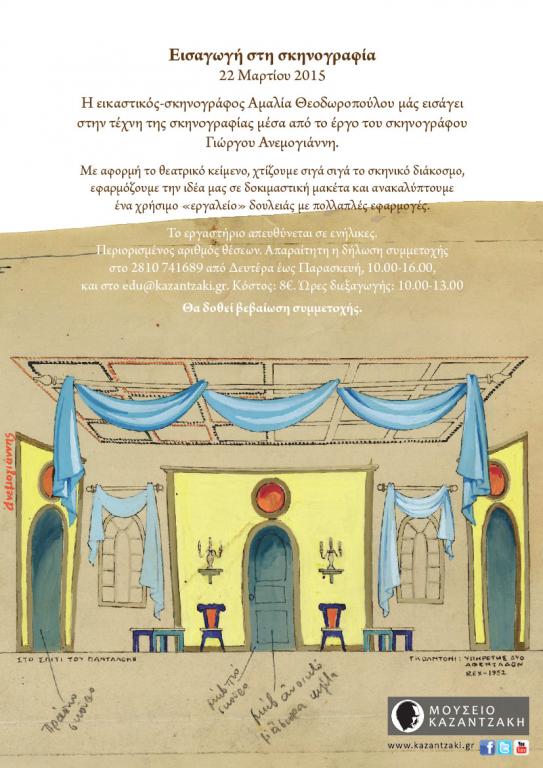 Εισαγωγή στη σκηνογραφία
22 Μαρτίου 2015
Η εικαστικός-σκηνογράφος Αμαλία Θεοδωροπούλου μάς εισάγει
στην τέχνη της σκηνογραφίας μέσα από το έργο του σκηνογράφου
Γιώργου Ανεμογιάννη.
Με αφορμή το θεατρικό κείμενο, χτίζουμε σιγά σιγά το σκηνικό διάκοσμο,
εφαρμόζουμε την ιδέα μας σε δοκιμαστική μακέτα και ανακαλύπτουμε
ένα χρήσιμο «εργαλείο» δουλειάς με πολλαπλές εφαρμογές.
Το εργαστήριο απευθύνεται σε ενήλικες.
Περιορισμένος αριθμός θέσεων. Απαραίτητη η δήλωση συμμετοχής
στο 2810 741689 από Δευτέρα έως Παρασκευή, 10.00-16.00,
και στο edu@kazantzaki.gr. Κόστος: 8€. Ώρες διεξαγωγής: 10.00-13.00
Θα δοθεί βεβαίωση συμμετοχής.
ΣΤΟ ΣΠΙΤΙ ΤΟΥ ΠΑΝΤΑΛΟΝΕ
ΓΚΟΛΝΤΟΝΙ: ΥΠΗΡΕΤΗΣ ΔΥΟ
ΑΦΕΝΤΑΔΩΝ
REX-1952
ΜΟΥΣΕΙΟ
ΚΑΖΑΝΤΖΑΚΗ
www.kazantzaki.gr